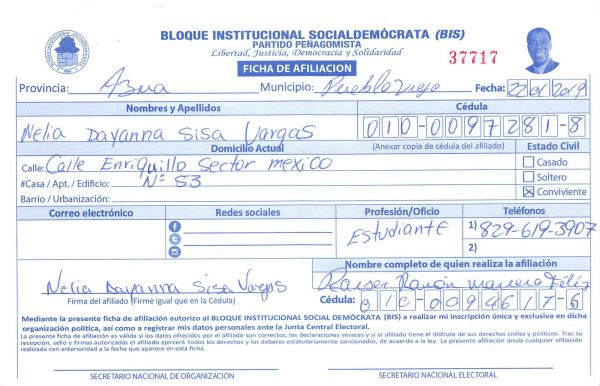 BLOQUE INSTITUCIONAL SOCIALDEMÓCRATA (BIS)
PARTIDO PEÑAGOMISTA
Libertad, Justicia, Democracia y Solidaridad
37717
FICHA DE AFILIACION
Provincia: Azua Municipio: Pueblo Viejo Fecha: 22/01/2019
Nombres y Apellidos Cédula
Nelia Dayanna Sisa Vargas 010-0097281-8
Domicilio Actual (Anexar copia de cédula del afiliado) Estado Civil
Calle: Calle Enriquillo sector mexico Casado
#Casa / Apt. / Edificio: Nº 53 Soltero
Barrio / Urbanización: Conviviente
Correo electrónico Redes sociales Profesión/Oficio Teléfonos
Estudiante 1) 829-619-3907
2)
Nombre completo de quien realiza la afiliación
Nelia Dayanna Sisa Vargas Ramón Féliz
Firma del afiliado (Firme igual que en la Cédula) Cédula: 010-0094617-6
Mediante la presente ficha de afiliación autorizo al BLOQUE INSTITUCIONAL SOCIAL DEMÓCRATA (BIS) a realizar mi inscripción única y exclusiva en dicha
organización política, así como a registrar mis datos personales ante la Junta Central Electoral.
La presente ficha de afiliación es válida si los datos ofrecidos por el afiliado son correctos, las declaraciones veraces y si el afiliado tiene el disfrute de sus derechos civiles y políticos. Tras su
recepción, sello y firmas autorizadas el afiliado ejercerá todos los derechos y los deberes estatutariamente sancionados, de acuerdo a la ley. La presente afiliación anula cualquier afiliación
realizada con anterioridad a la fecha que aparece en esta ficha.
SECRETARIO NACIONAL DE ORGANIZACIÓN SECRETARIO NACIONAL ELECTORAL